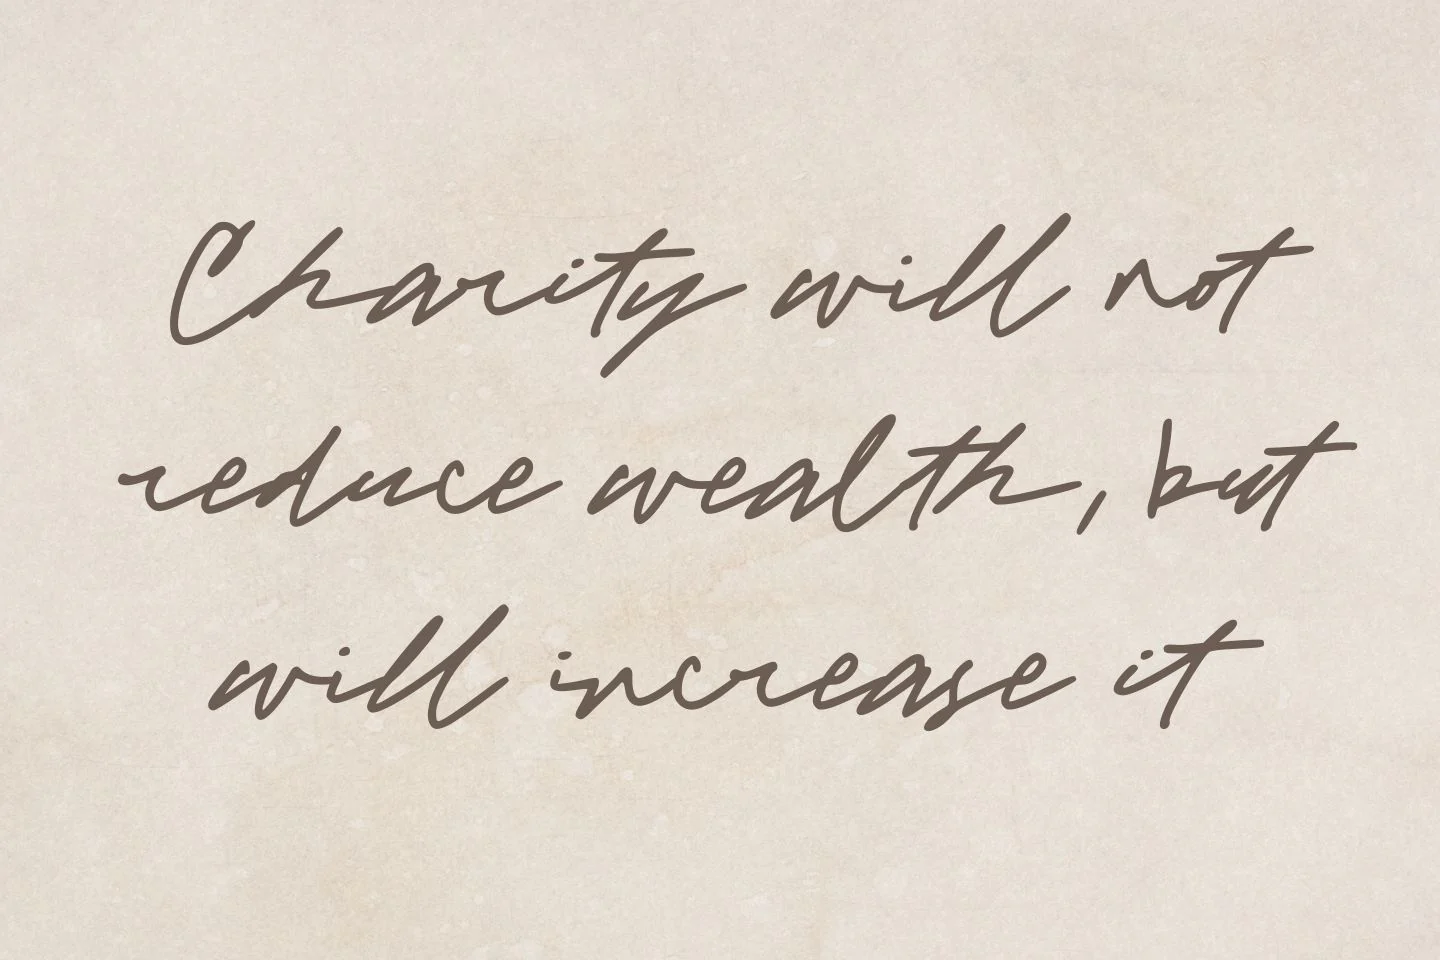 Charity will not
reduce wealth, but
will increase it